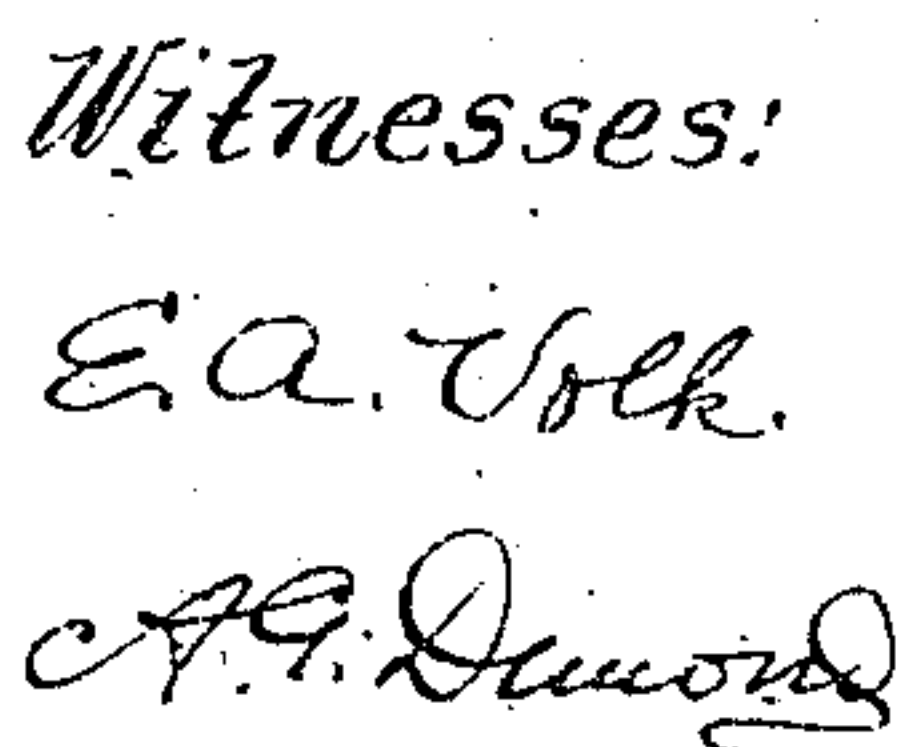 Witnesses:
E. A. Volk.
A. G. Dimond